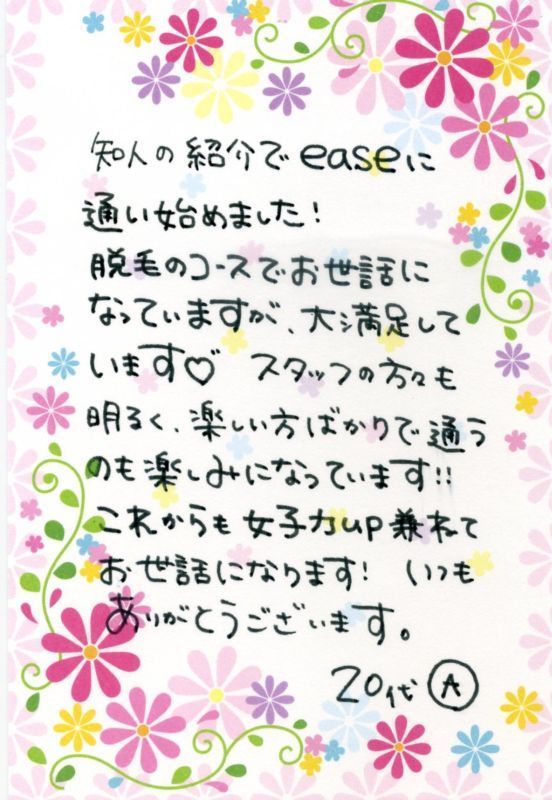 知人の紹介でeaseに
通い始めました!
脱毛のコースでお世話に
なっていますが、大満足して
います♡ スタッフの方々も
明るく、楽しい方ばかりで通う
のも楽しみになっています!!
これからも女子力up兼ねて
お世話になります! いつも
ありがとうございます。
20代 Ⓐ